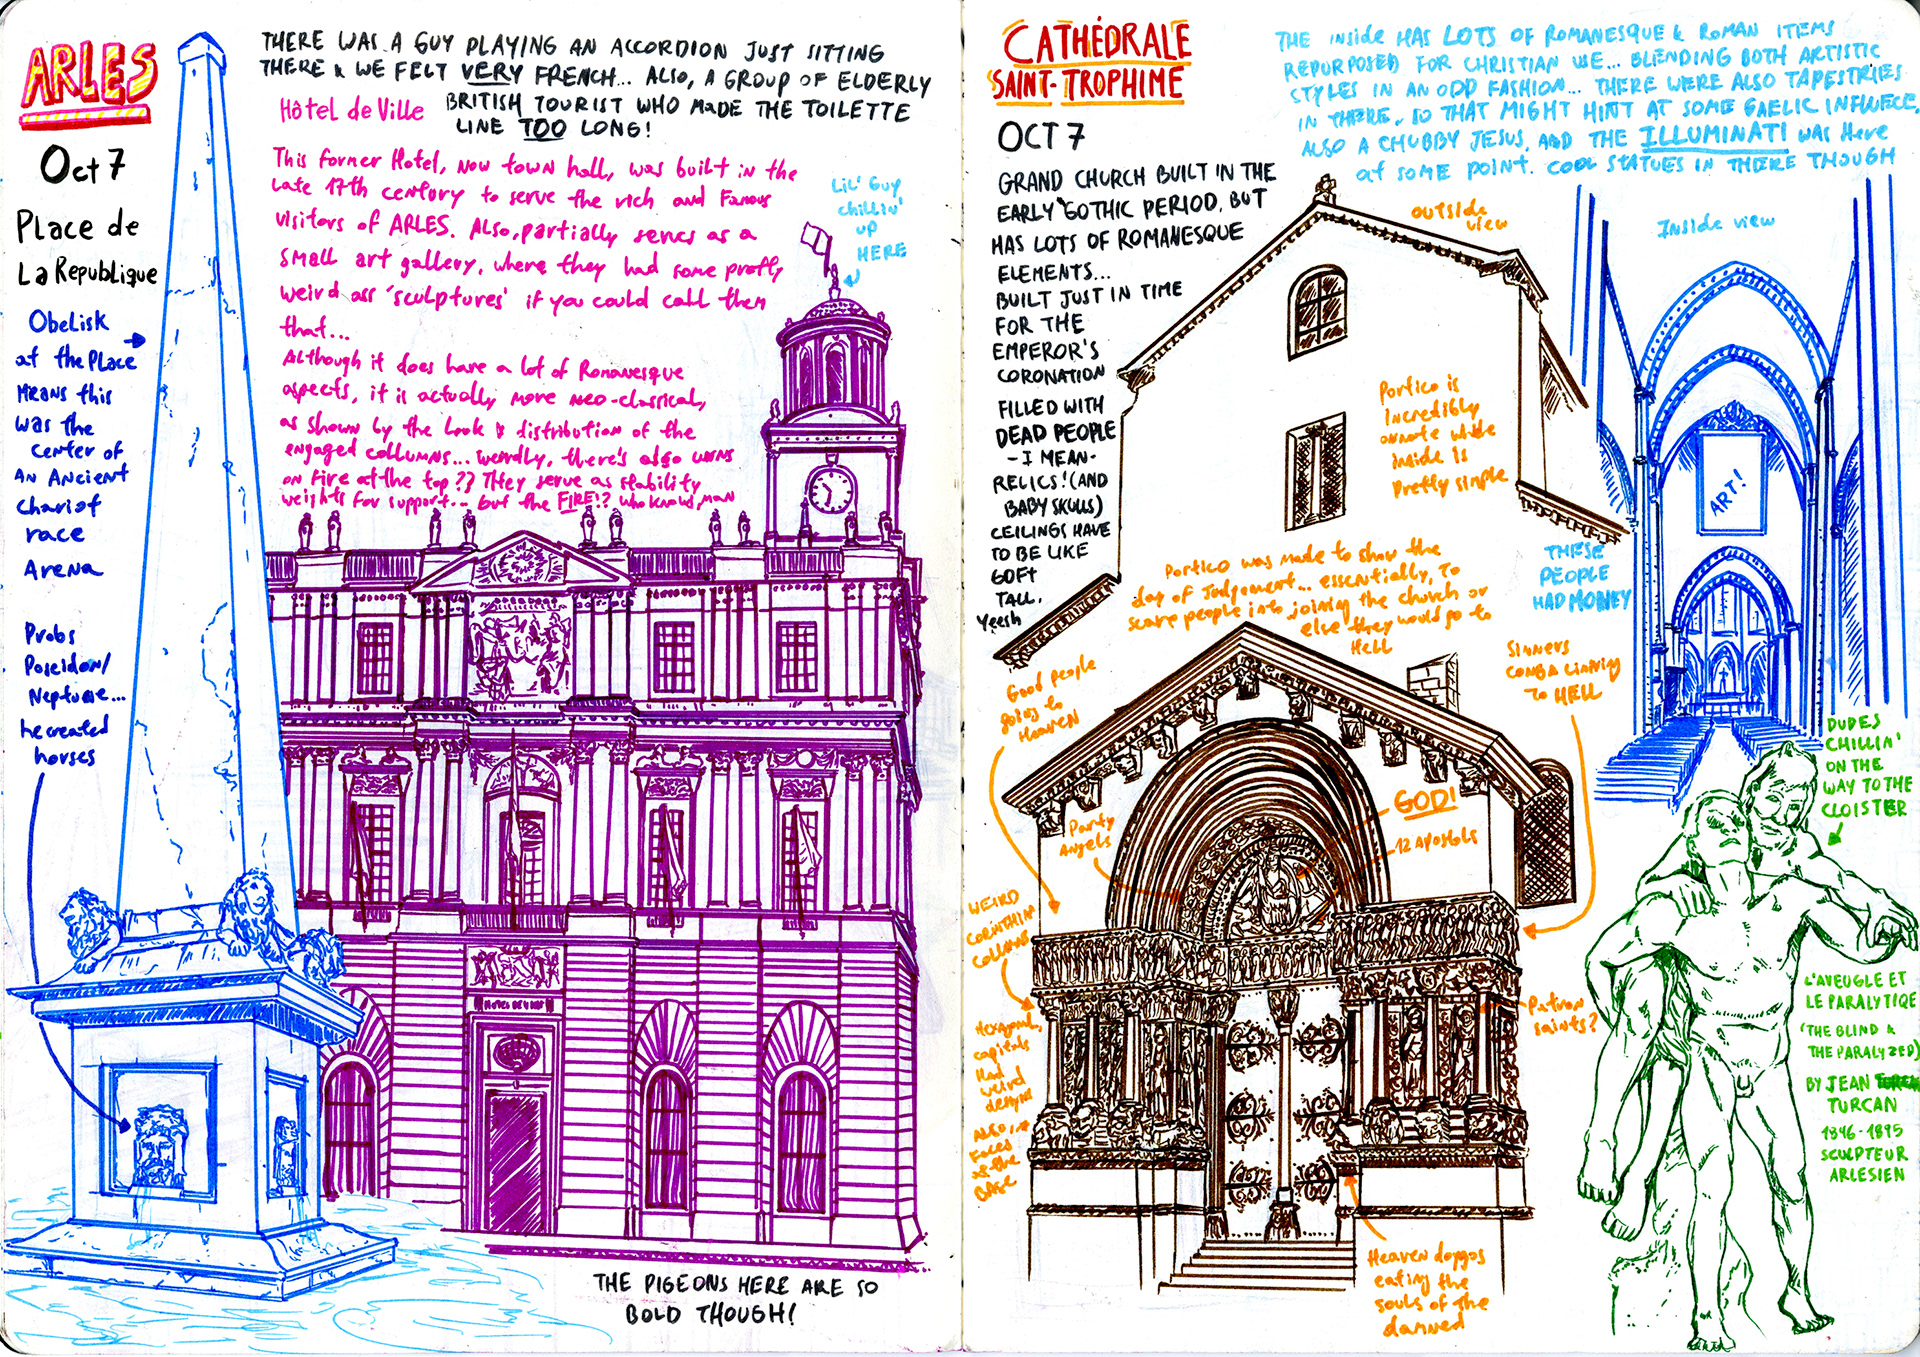 ARLES
Oct 7
Place de
La Republique
Obelisk
at the Place
means this
was the
center of
an Ancient
chariot
race
Arena
Probs
Poseidon/
Neptune...
he created
horses
THERE WAS A GUY PLAYING AN ACCORDION JUST SITTING
THERE & WE FELT VERY FRENCH... ALSO, A GROUP OF ELDERLY
BRITISH TOURIST WHO MADE THE TOILETTE
LINE TOO LONG!
Hôtel de Ville
This former Hotel, now town hall, was built in the
late 17th century to serve the rich and famous
visitors of ARLES. Also, partially serves as a
small art gallery, where they had some pretty
weird ass 'sculptures' if you could call them
that...
Although it does have a lot of Romanesque
aspects, it is actually more neo-classical,
as shown by the look & distribution of the
engaged collumns... weirdly, there's also urns
on fire at the top?? They serve as stability
weights for support... but the FIRE!? Who knows, man
Lil' Guy
chillin'
up
HERE
HOTEL DE VILLE
THE PIGEONS HERE ARE SO
BOLD THOUGH!
CATHÉDRALE
SAINT-TROPHIME
OCT 7
GRAND CHURCH BUILT IN THE
EARLY GOTHIC PERIOD, BUT
HAS LOTS OF ROMANESQUE
ELEMENTS...
BUILT JUST IN TIME
FOR THE
EMPEROR'S
CORONATION
FILLED WITH
DEAD PEOPLE
- I MEAN-
RELICS! (AND
BABY SKULLS)
CEILINGS HAVE
TO BE LIKE
60FT
TALL,
Yeesh
THE INSIDE HAS LOTS OF ROMANESQUE & ROMAN ITEMS
REPURPOSED FOR CHRISTIAN USE... BLENDING BOTH ARTISTIC
STYLES IN AN ODD FASHION... THERE WERE ALSO TAPESTRIES
IN THERE, SO THAT MIGHT HINT AT SOME GAELIC INFLUECE,
ALSO A CHUBBY JESUS, AND THE ILLUMINATI WAS Here
at SOME POINT. COOL STATUES IN THERE THOUGH
outside
view
Inside view
Portico is
incredibly
ornate while
inside is
pretty simple
ART!
THESE
PEOPLE
HAD MONEY
Portico was made to show the
day of Judgement... essentially, to
scare people into joining the church or
else they would go to
Hell
Good people
going to
Heaven
Sinners
conga lining
to HELL
GOD!
12 Apostols
Party
Angels
WEIRD
CORINTHIAN
COLLUMNS
Hexagonal,
capitals
Had
weird
design
ALSO,
Faces
at the
BASE
Patron
saints?
Heaven doggos
eating the
souls of the
damned
DUDES
CHILLIN'
ON THE
WAY TO THE
CLOISTER
L'AVEUGLE ET
LE PARALYTIQE
(THE BLIND &
THE PARALYZED)
BY JEAN
TURCAN
1846-1895
SCULPTEUR
ARLESIEN